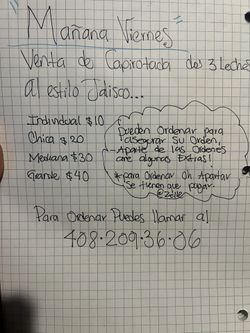 Mañana Viernes
Venta de Capirotada dos 3 Leches
al estilo Jalisco...
Individual $10
Chica $20
Mediana $30
Grande $40
Pueden Ordenar para
asegurar Su Orden,
Aparte de las Ordenes
can algunos Extras!
*para Ordenar Oh Apartar
Se tienen que pagar.
@Zelle
Para Ordenar Puedes llamar al
408·209·36·06